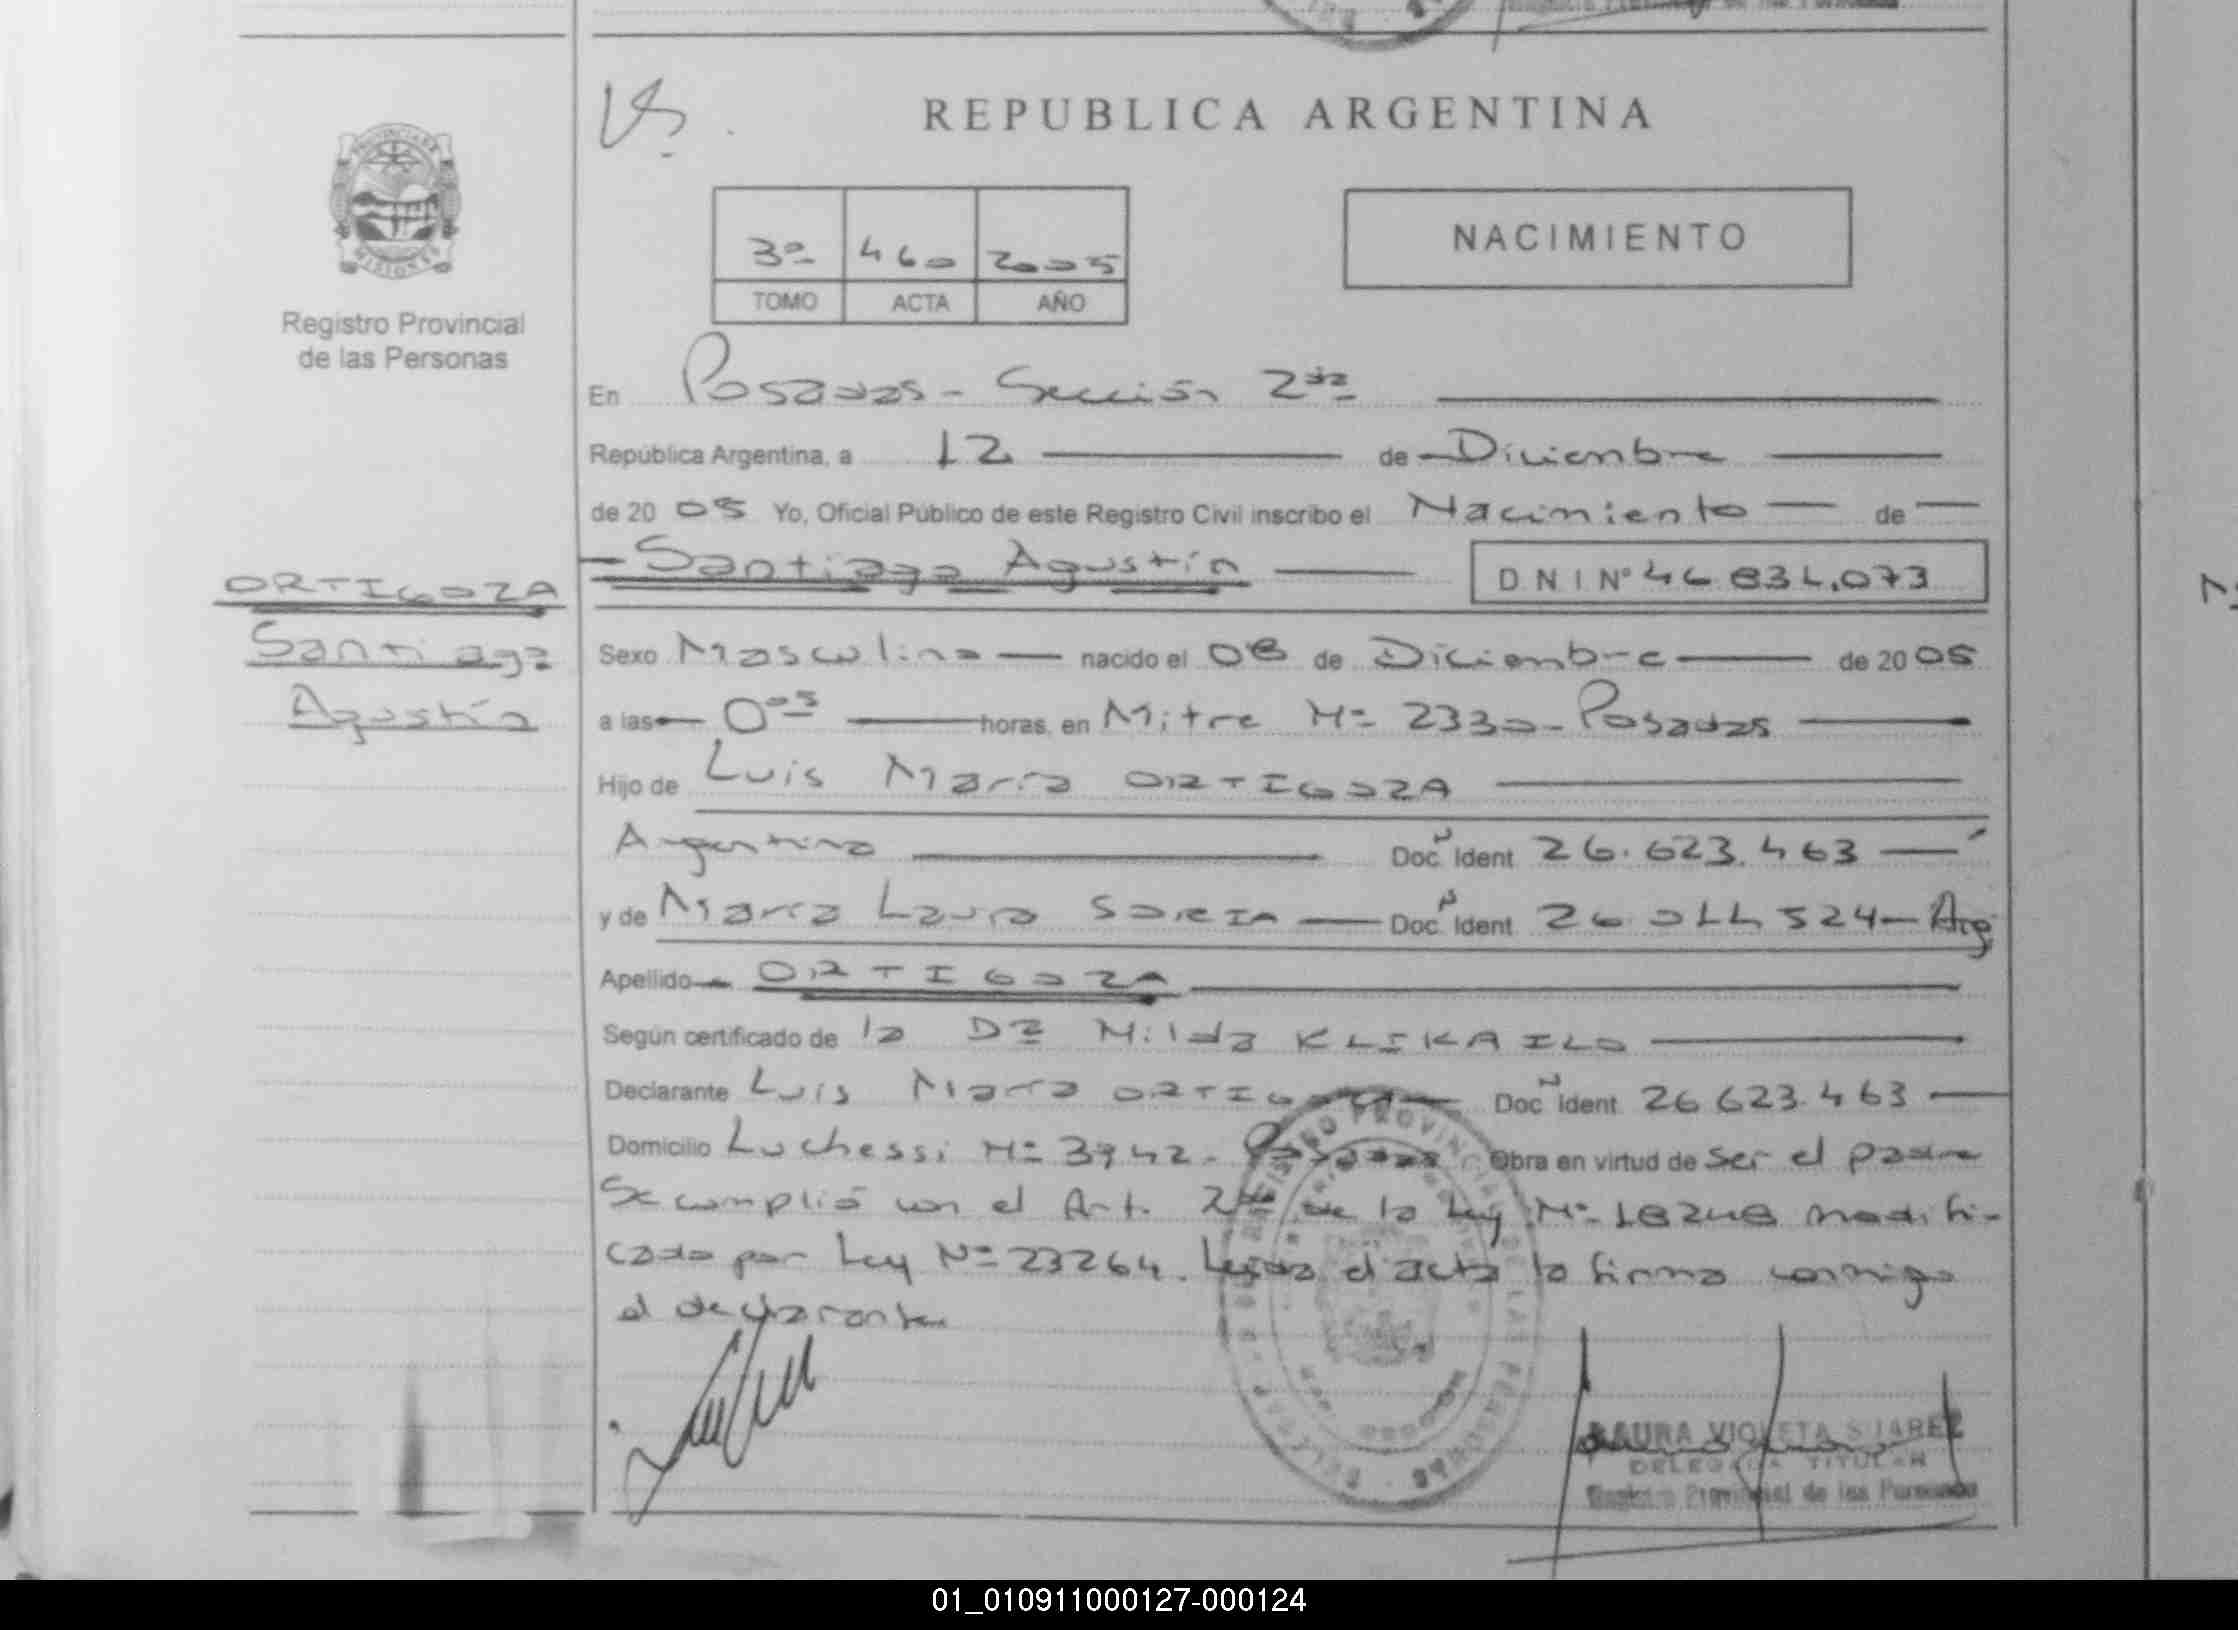 REPUBLICA ARGENTINA
PROVINCIA DE
MISIONES
Registro Provincial
de las Personas
3º 460 2005
TOMO ACTA AÑO
NACIMIENTO
En Posadas - Sección 2da
República Argentina, a 12 de Diciembre
de 2005 Yo, Oficial Público de este Registro Civil inscribo el Nacimiento de
Santiago Agustín DNI Nº 46.831.073
ORTIGOZA
Santiago
Agustín
Sexo Masculino nacido el 08 de Diciembre de 2005
a las 0:05 horas, en Mitre Nº 2330 - Posadas
Hijo de Luis María ORTIGOZA
Argentino Doc. Nº Ident 26.623.463
y de María Laura SORIA Doc. Nº Ident 26.011.524 - Arg
Apellido ORTIGOZA
Según certificado de la Dra Nilda KLIKAILO
Declarante Luis María ORTIGOZA Doc. Nº Ident 26.623.463
Domicilio Luchessi Nº 3942 - Posadas Obra en virtud de ser el padre
Se cumplió con el Art. 2do de la Ley Nº 18248 modifi-
cado por Ley Nº 23264. Leída el acta la firma conmigo
el declarante
REGISTRO PROVINCIAL DE LAS PERSONAS
LAURA VIOLETA SUAREZ
DELEGADA TITULAR
Registro Provincial de las Personas
01_010911000127-000124